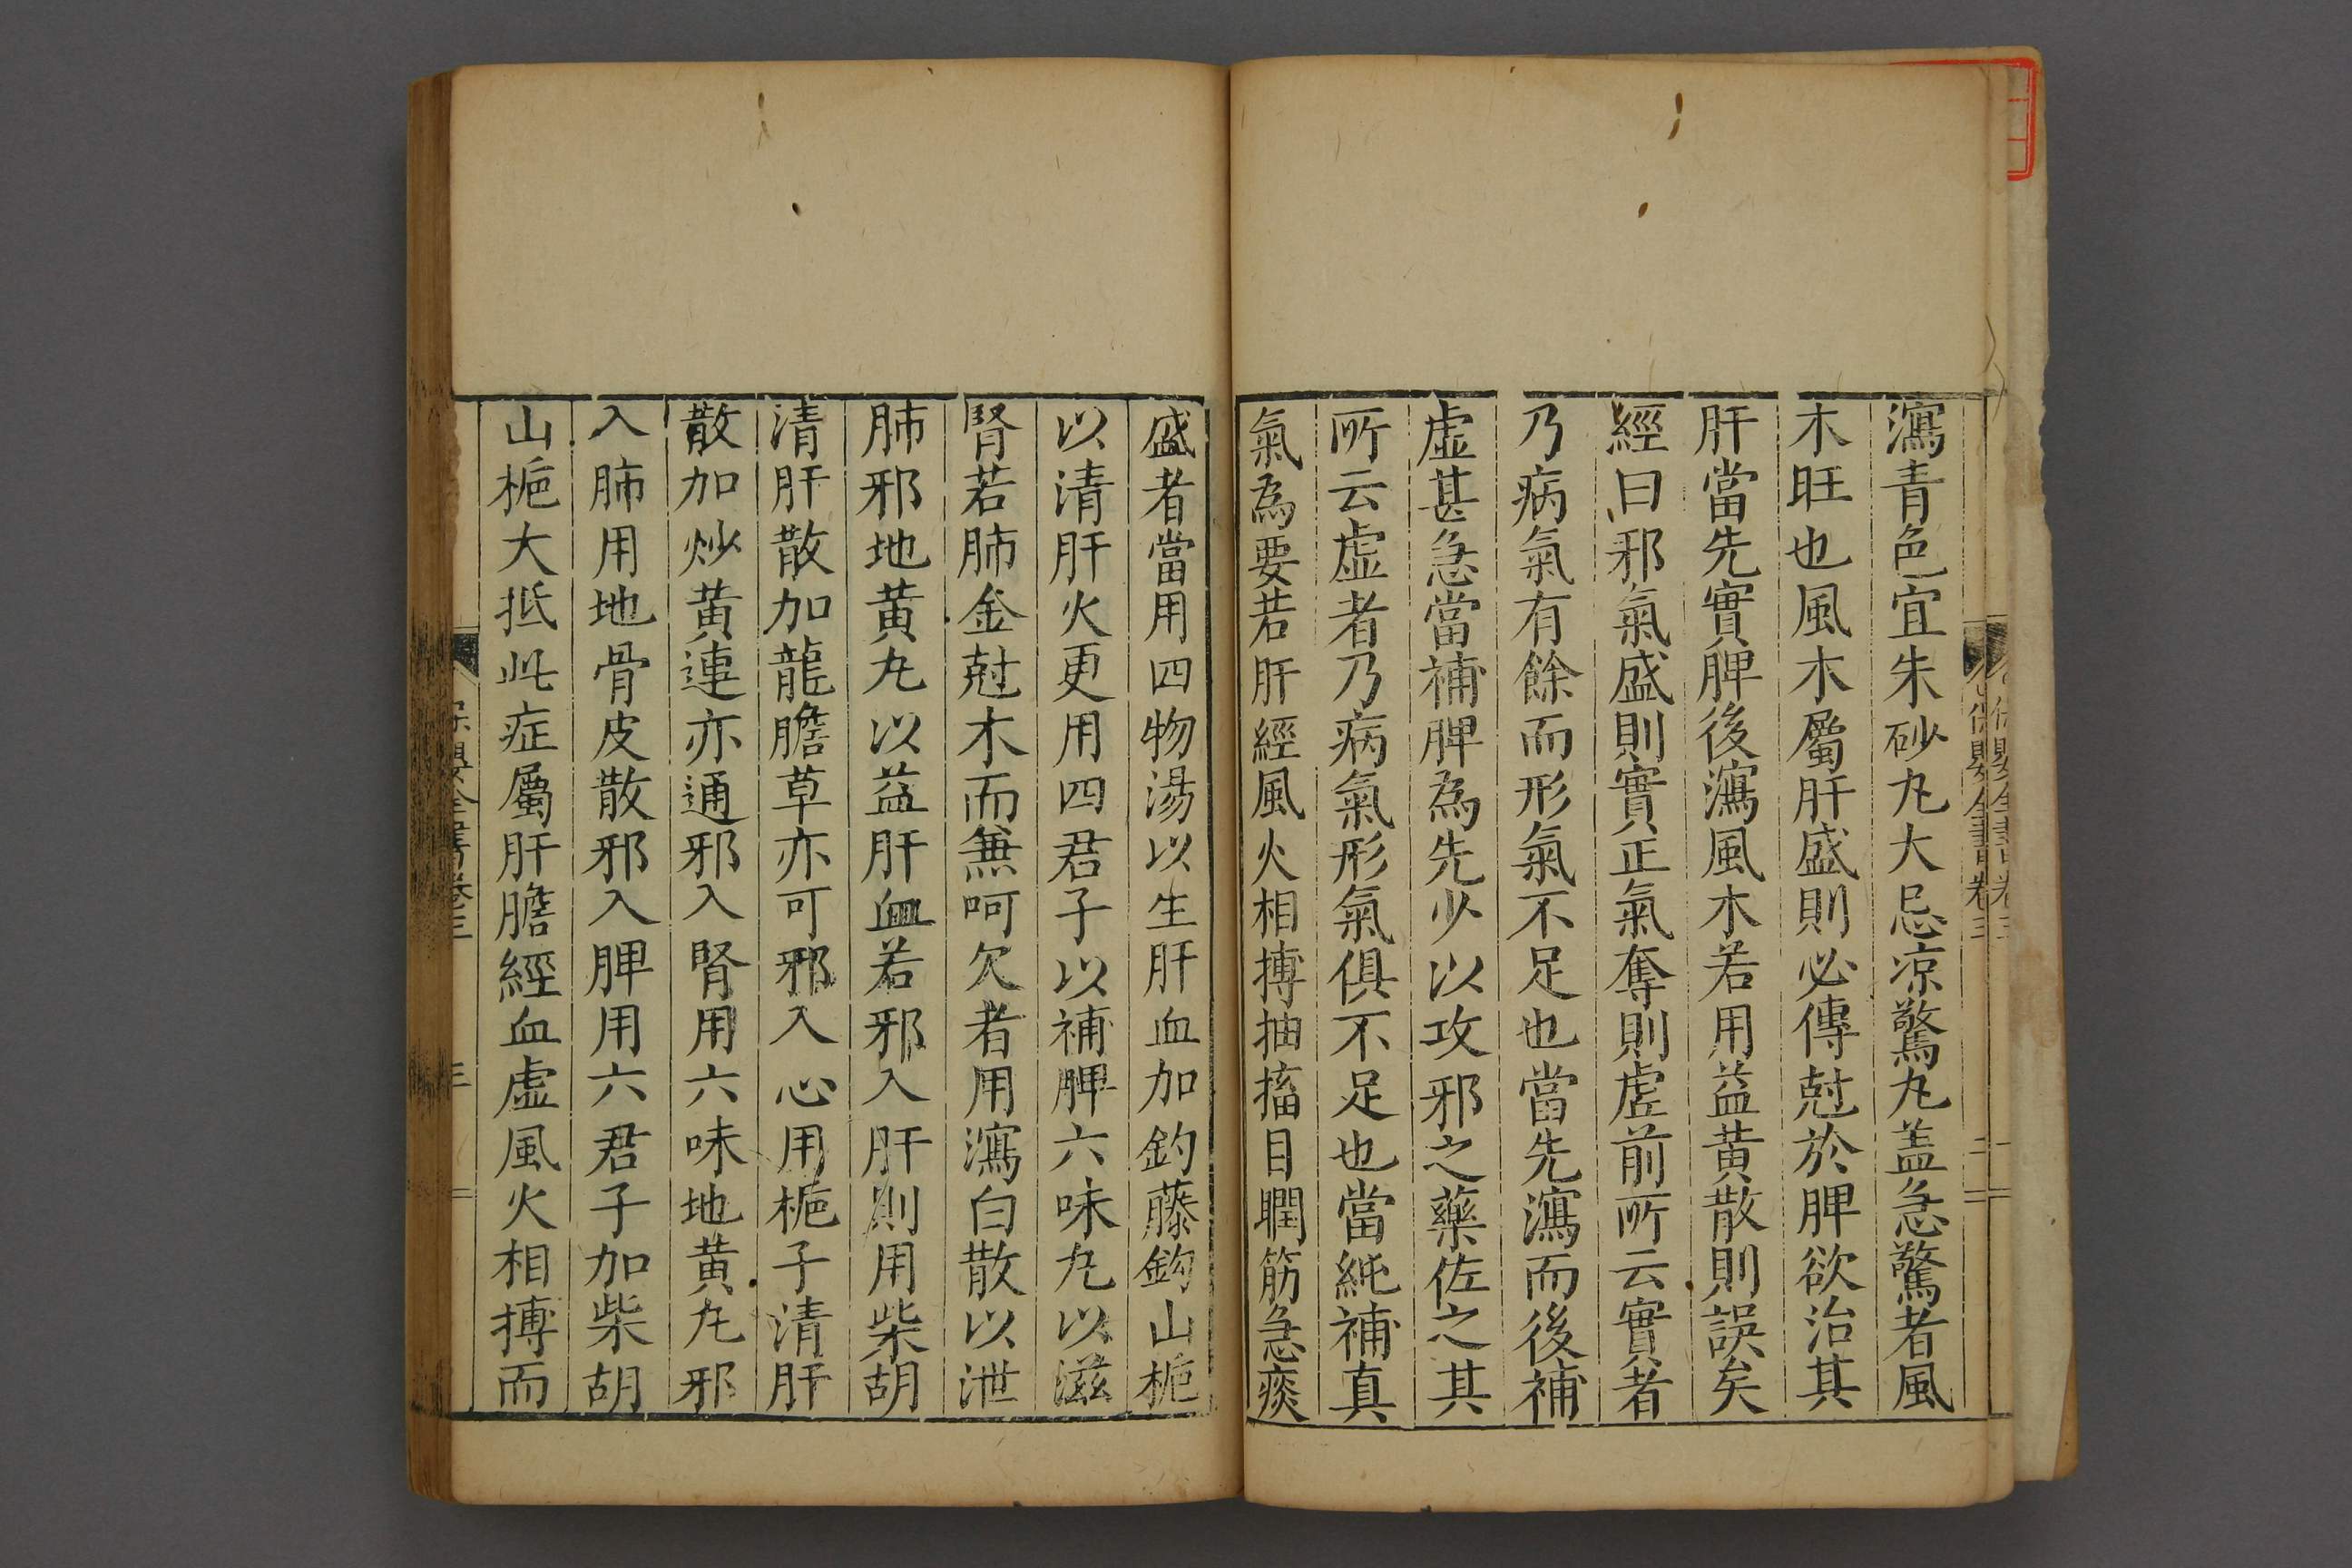 瀉青色宜朱砂丸大忌凉驚丸盖急驚者風
木旺也風木屬肝盛則必傳尅於脾欲治其
肝當先實脾後瀉風木若用益黄散則誤矣
經曰邪氣盛則實正氣奪則虛前所云實者
乃病氣有餘而形氣不足也當先瀉而後補
虛甚急當補脾為先少以攻邪之藥佐之其
所云虛者乃病氣形氣俱不足也當純補真
氣為要若肝經風火相搏抽搐目瞤筋急痰
盛者當用四物湯以生肝血加釣藤鈎山梔
以清肝火更用四君子以補脾六味丸以滋
腎若肺金尅木而兼呵欠者用瀉白散以泄
肺邪地黄丸以益肝血若邪入肝則用柴胡
清肝散加龍膽草亦可邪入心用梔子清肝
散加炒黄連亦通邪入腎用六味地黄丸邪
入肺用地骨皮散邪入脾用六君子加柴胡
山梔大抵此症屬肝膽經血虛風火相搏而
保嬰全書卷三
三